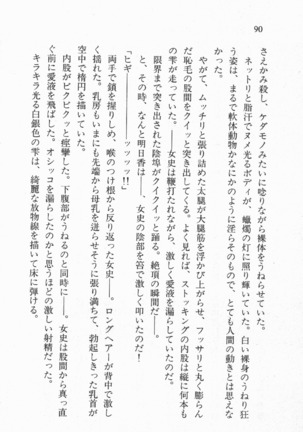 90
さえかみ殺し、ケダモノみたいに唸りながら裸体をうねらせていた。
ネットリと脂汗でヌメ光るボディが、蝋燭の灯に照り輝いていた。白い裸身のうねり狂
う姿は、まるで軟体動物かなにかのように淫らそのもので、とても人間の動きとは思えな
かった。
やがて、ムッチリと張り詰めた太腿が大腿筋を浮かび上がらせ、フッサリと丸く膨らん
だ恥毛の股間をクイッと突き出してくる。よく見れば、ストッキングの内股は縦に何本も
の雫が走っていた。――女史は鞭打たれながら、激しく愛液を漏らしていたのだ。
限界まで突き出された陰埠がクイクイッと踊る。絶頂の瞬間だ――。
と、その時、なんと明日香は――、女史の陰部を笞で激しく叩いたのだ！
「ヒギ―――――――ッッッッ！！」
両手で鎖を握りしめ、喉のつけ根から反り返った女史――。ロングヘアーが背中で激し
く揺れた。乳房もいまにも先端から母乳を迸らせそうに張り満ちて、勃起しきった乳首が
空中で楕円を描いていた。
内股がビクビクッと痙攣した。下腹部がうねるのと同時に――。女史は股間から真っ直
ぐ前に愛液を飛ばした。オシッコを漏らしたのかと思うほどの激しい射精だった。
キラキラ光る白銀色の雫は、綺麗な放物線を描いて床に弾ける。